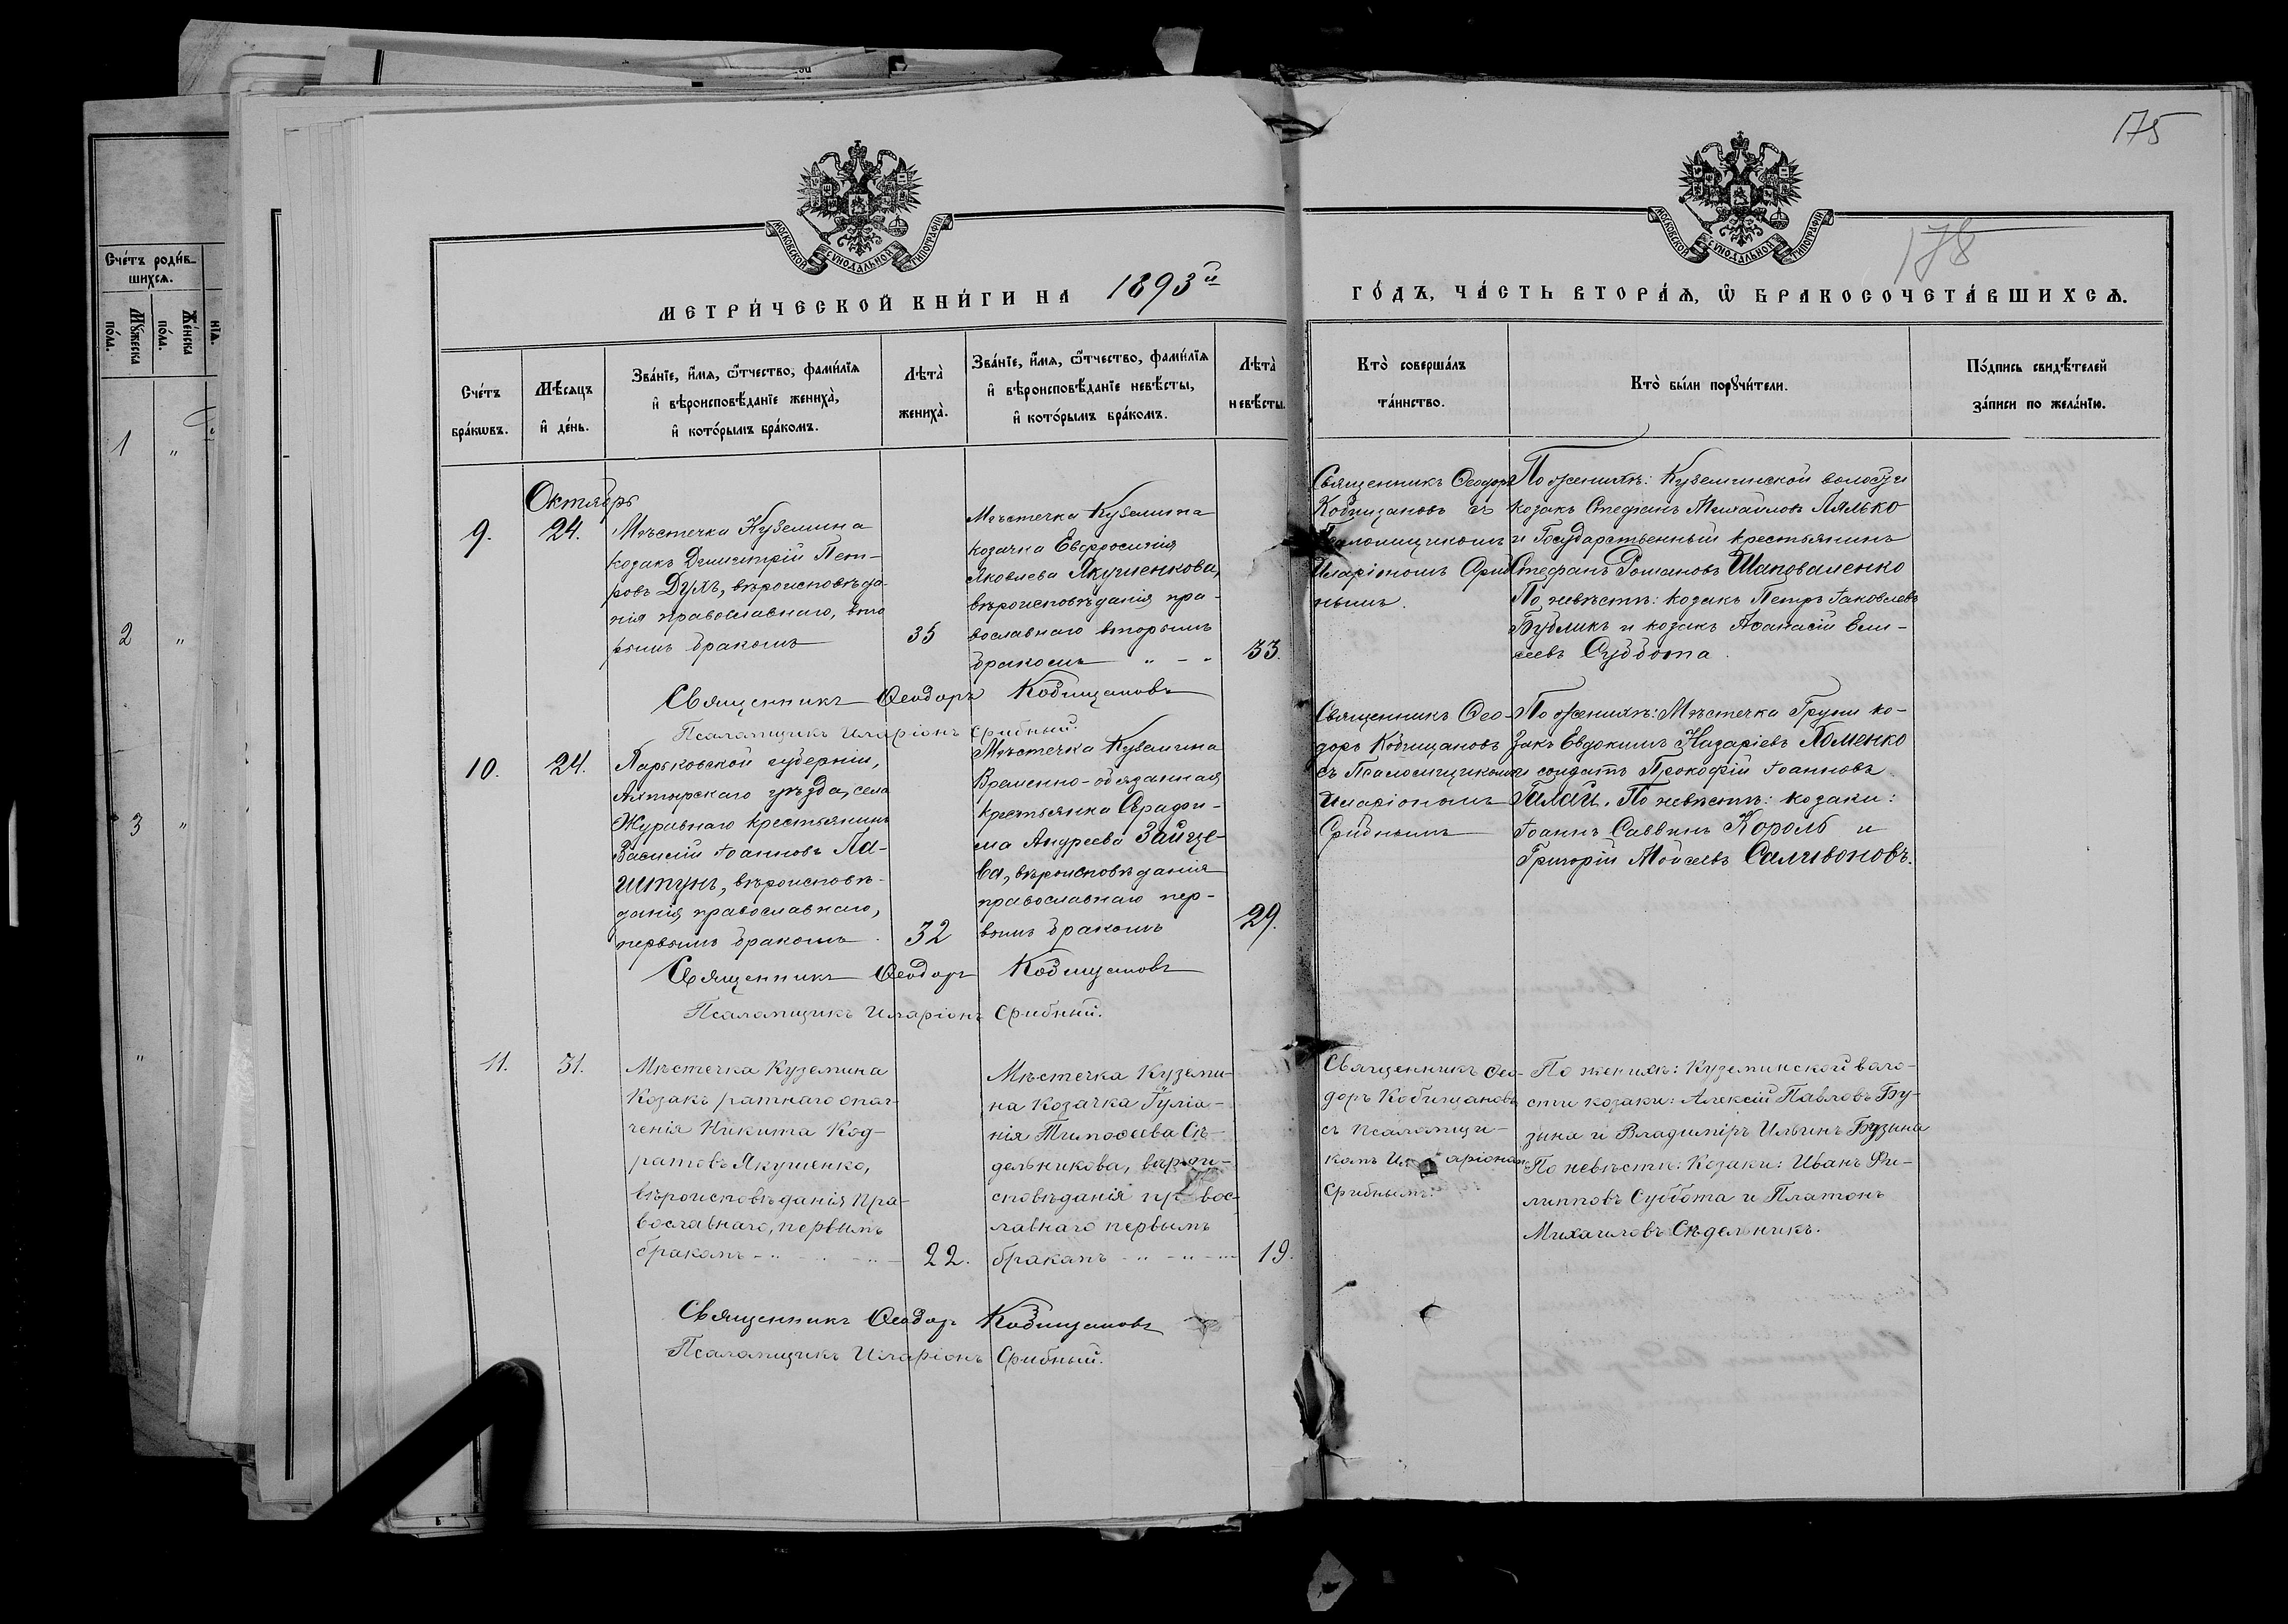 175
178
МОСКОВСКОЙ СѴНОДАЛЬНОЙ ТИПОГРАФІИ
МОСКОВСКОЙ СѴНОДАЛЬНОЙ ТИПОГРАФІИ
МЕТРИ́ЧЕСКОЙ КНИ́ГИ НА 1893й
ГО́ДЪ, ЧА́СТЬ ВТОРА́Я, Ѡ БРАКОСОЧЕТА́ВШИХСЯ.
Сче́тъ роди́в-
шихся.
Мꙋ́жеска
по́ла.
Же́нска
по́ла.
1 "
2 "
3 "
"
Сче́тъ
бра́кѡвъ.
Мѣ́сяцъ
и҆ де́нь.
Зва́нїе, и҆́мя, ѻ҆́тчество, фами́лїя
и҆ вѣроисповѣ́данїе жениха̀,
и҆ кото́рымъ бра́комъ.
Лѣта̀
жениха̀.
Зва́нїе, и҆́мя, ѻ҆́тчество, фами́лїя
и҆ вѣроисповѣ́данїе невѣ́сты,
и҆ кото́рымъ бра́комъ.
Лѣта̀
невѣ́сты.
Кто̀ соверша́лъ
та́инство.
Кто̀ бы́ли порꙋчи́тели.
По́дпись свидѣ́телей
за́писи по жела́нїю.
Октябрь
9.
24.
Мѣстечка Куземина
козакъ Димитрій Пет-
ровъ Духъ, вѣроисповѣда-
нія православнаго, вто
рымъ бракомъ
35
Мѣстечка Куземина
козачка Евфросинія
Яковлева Якушенкова,
вѣроисповѣданія пра-
вославнаго вторымъ
бракомъ " - "
33.
Священникъ Ѳеодоръ
Кобищановъ съ
Псаломщикомъ
Иларіономъ Сриб
нымъ.
По женихѣ: Куземинской волости
козакъ Стефанъ Михайловъ Лялько
и Государственный крестьянинъ
Стефанъ Романовъ Шаповаленко
По невѣстѣ: козакъ Петръ Іаковлевъ
Бубликъ и козакъ Аѳанасій Ели-
сеевъ Суббота.
Священникъ Ѳеодоръ Кобищановъ
Псаломщикъ Иларіонъ Срибный.
10.
24.
Харьковской губерніи,
Ахтырскаго уѣзда, села
Журавнаго крестьянинъ
Василій Іоанновъ Ла-
штунъ, вѣроисповѣ-
данія православнаго,
первымъ бракомъ.
32
Мѣстечка Куземина
Временно-обязанная
крестьянка
ма Андреева Зайце-
ва, вѣроисповѣданія
православнаго пер-
вымъ бракомъ
29.
Священникъ Ѳео-
доръ Кобищановъ
съ Псаломщикомъ
Иларіономъ
Срибнымъ
По женихѣ: Мѣстечка Груни ко-
закъ Евдокимъ Назаріевъ Хоменко
и солдатъ Прокофій Іоанновъ
Галай. По невѣстѣ: козаки:
Іоаннъ Саввинъ Король и
Григорій Мойсеевъ Саливоновъ.
Священникъ Ѳеодоръ Кобищановъ
Псаломщикъ Иларіонъ Срибный.
11.
31.
Мѣстечка Куземина
Козакъ ратнаго опол-
ченія Никита Код-
ратовъ Якушенко,
вѣроисповѣданія Пра-
вославнаго, первымъ
бракомъ
22.
Мѣстечка Куземи-
на Козачка Іуліа-
нія Тимофеева Сѣ-
дельникова, вѣрои-
сповѣданія правос-
лавнаго первымъ
бракомъ
19.
Священникъ Ѳео-
доръ Кобищановъ
съ псаломщи-
комъ Иларіономъ
Срибнымъ.
По женихѣ: Куземинской воло-
сти козаки: Алексій Павловъ Бу-
зына и Владиміръ Ильинъ Бузына
По невѣстѣ: Козаки: Иванъ Фи-
липповъ Суббота и Платонъ
Михаиловъ Сѣдельникъ.
Священникъ Ѳеодоръ Кобищановъ
Псаломщикъ Иларіонъ Срибный.